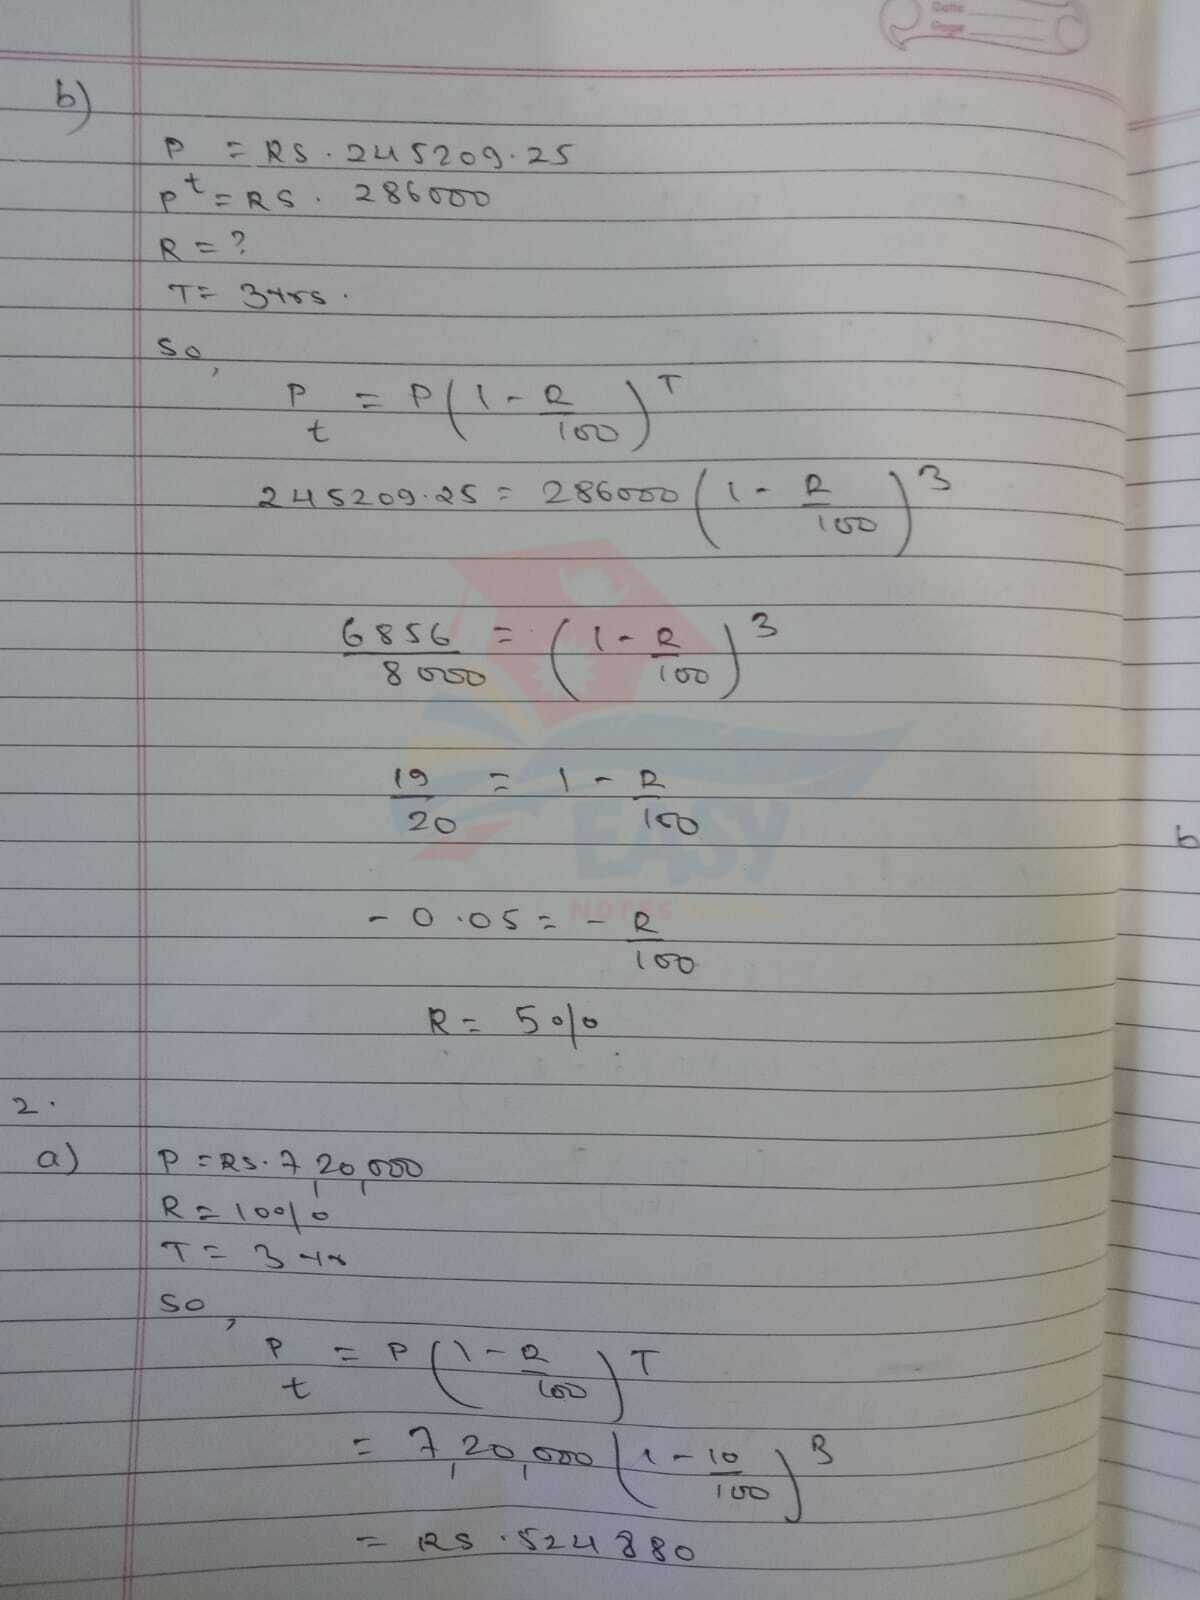 Date
Page
b)
P = RS. 245209.25
P^t = RS. 286000
R = ?
T = 3yrs.
so,
P_t = P(1 - R/100)^T
245209.25 = 286000(1 - R/100)^3
6856/8000 = (1 - R/100)^3
19/20 = 1 - R/100
EASY
NOTES
-0.05 = - R/100
R = 5%
2.
a) P = RS. 7,20,000
R = 10%
T = 3 yr
so,
P_t = P(1 - R/100)^T
= 7,20,000(1 - 10/100)^3
= RS. 524880
b